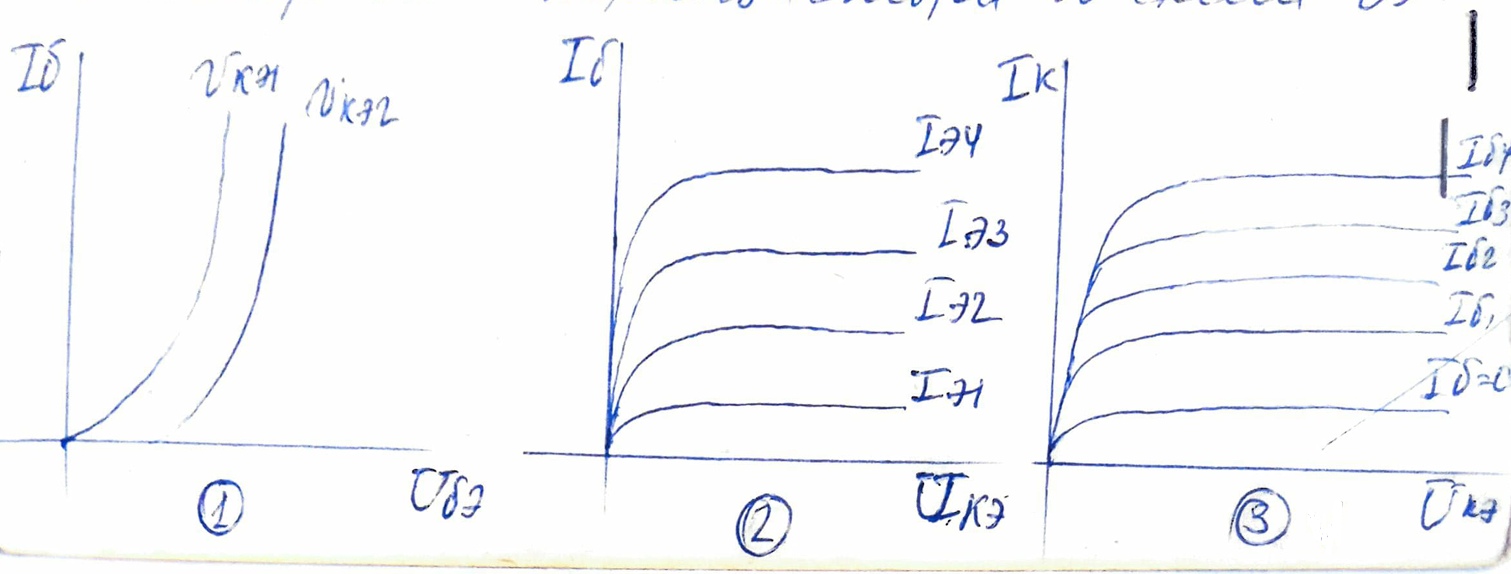 Iб
Uкэ1
Uкэ2
Uбэ
1
Iб
Iэ4
Iэ3
Iэ2
Iэ1
Uкэ
2
Iк
Iб4
Iб3
Iб2
Iб1
Iб=0
Uкэ
3